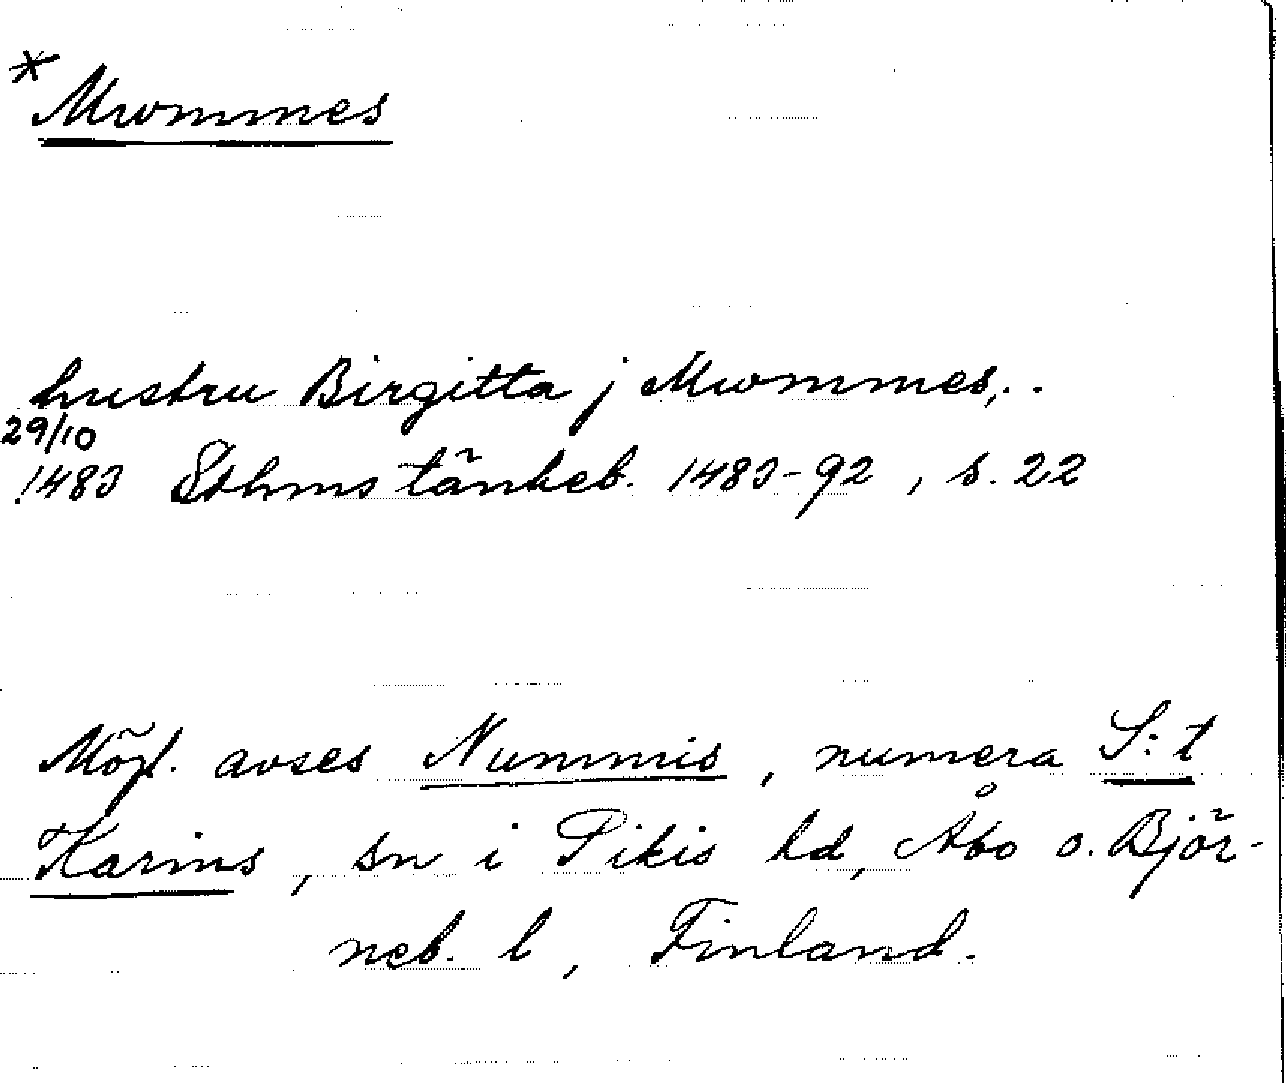 * Mwommes
hustru Birgitta j Mwommes,..
29/10
1483 Sthms tänkeb. 1483-92, s. 22
Möjl. avses Nummis, numera S:t
Karins, sn i Pikis hd, Åbo o. Björ-
neb. l, Finland.